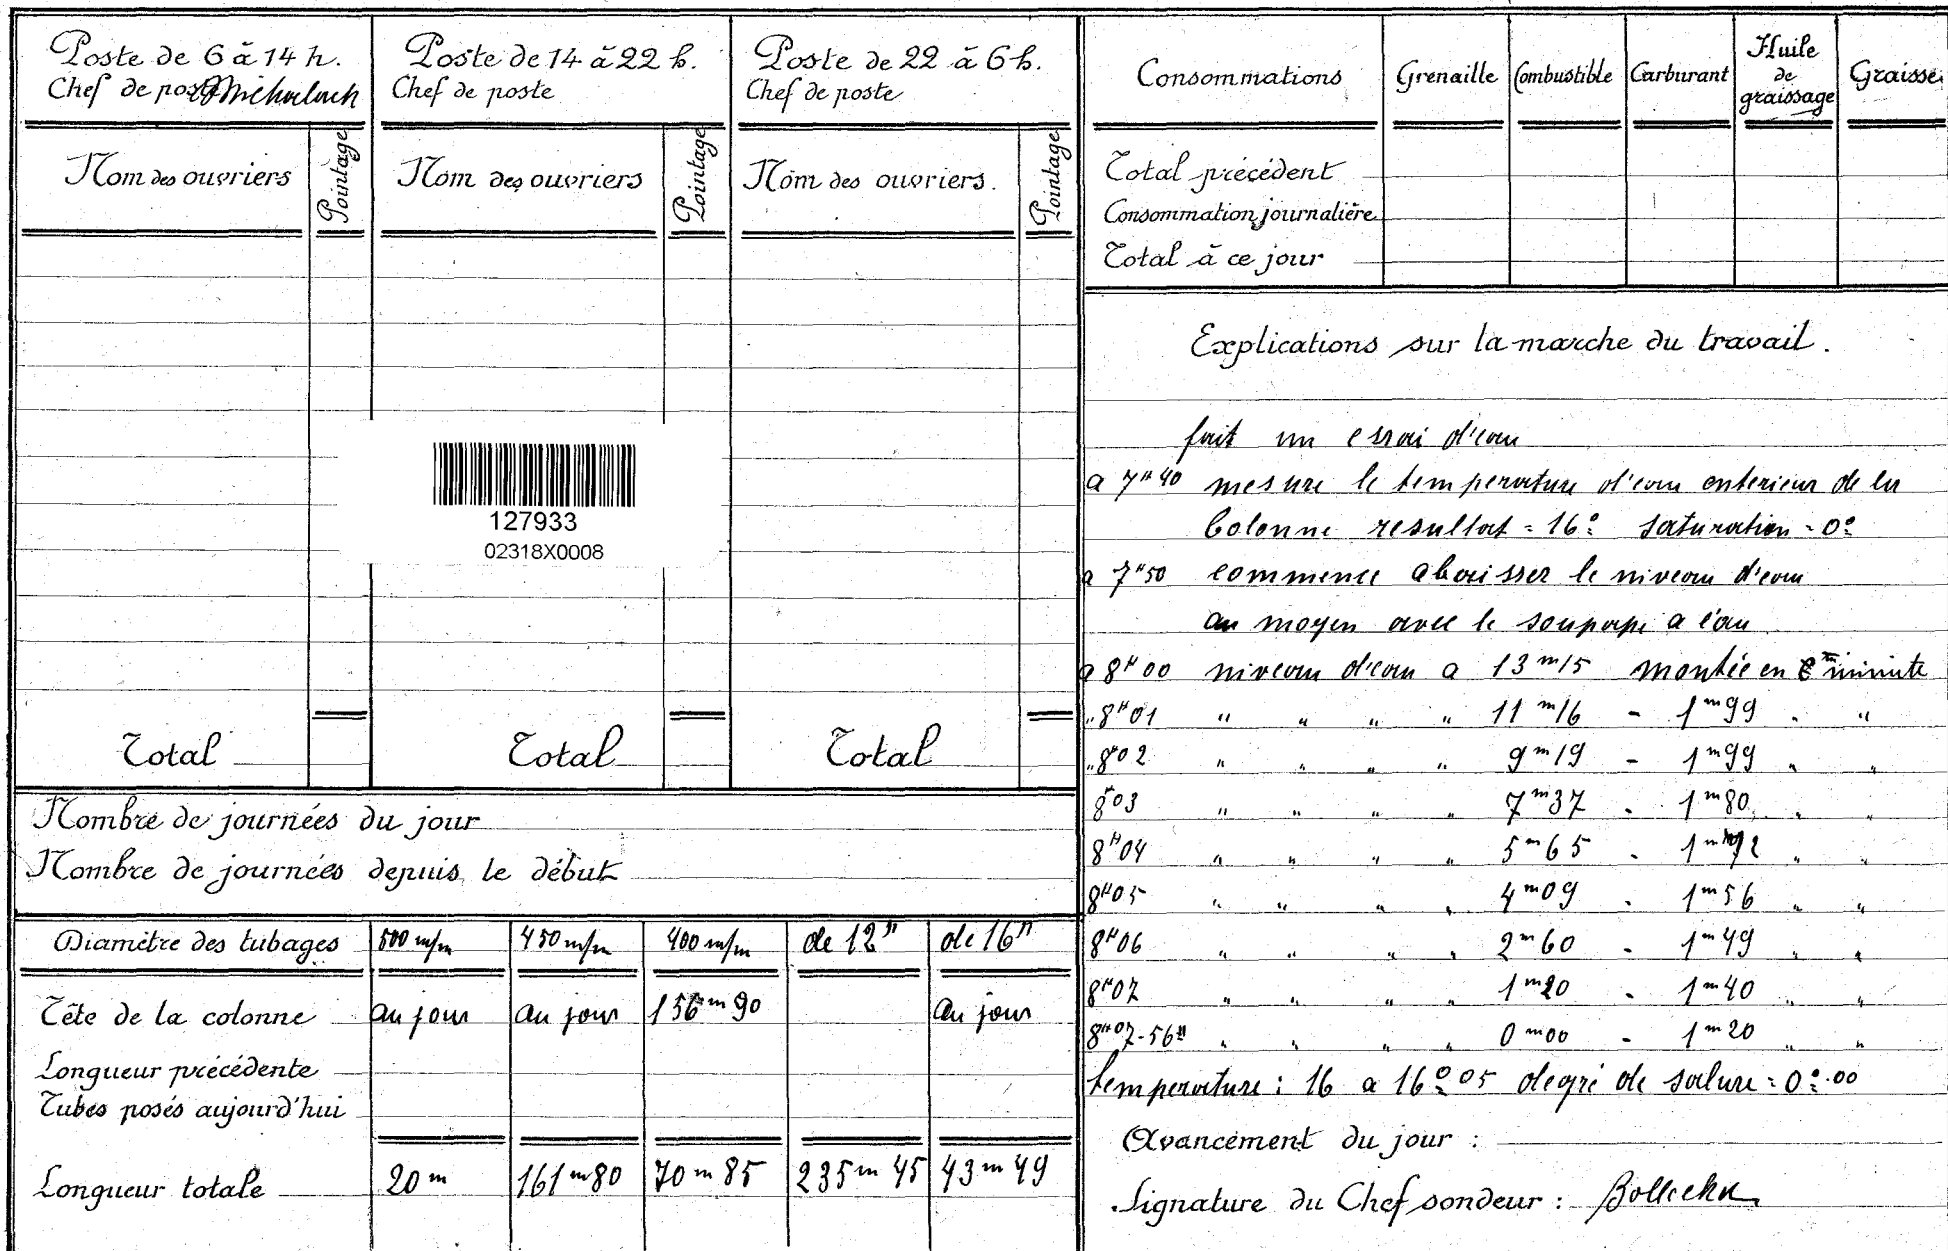 Poste de 6 à 14 h.
Chef de poste
Poste de 14 à 22 h.
Chef de poste
Poste de 22 à 6 h.
Chef de poste
Nom des ouvriers
Pointage
Nom des ouvriers
Pointage
Nom des ouvriers.
Pointage
127933
02318X0008
Total
Total
Total
Nombre de journées du jour
Nombre de journées depuis le début
Diamètre des tubages 500 m/m 450 m/m 400 m/m de 12" de 16"
Tête de la colonne au jour au jour 156 m 90 au jour
Longueur précédente
Tubes posés aujourd'hui
Longueur totale 20 m 161 m 80 70 m 85 235 m 45 43 m 49
Consommations Grenaille Combustible Carburant Huile de graissage Graisse
Total précédent
Consommation journalière
Total à ce jour
Explications sur la marche du travail.
fait un essai d'eau
a 7H40 mesure le temperature d'eau enterieur de la
Colonne resultat = 16° saturation = 0°
a 7H50 commence abaisser le niveau d'eau
au moyen avec le soupape a l'eau
a 8H00 niveau d'eau a 13 m 15 montée en minute
" 8H01 " " " " 11 m 16 - 1 m 99 " "
" 8H02 " " " " 9 m 19 - 1 m 99 " "
8H03 " " " " 7 m 37 - 1 m 80 " "
8H04 " " " " 5 m 65 - 1 m 72 " "
8H05 " " " " 4 m 09 - 1 m 56 " "
8H06 " " " " 2 m 60 - 1 m 49 " "
8H07 " " " " 1 m 20 - 1 m 40 " "
8H07-56" " " " " 0 m 00 - 1 m 20 " "
temperature : 16 a 16° 05 degré de salure = 0°.00
Avancement du jour :
Signature du Chef sondeur :